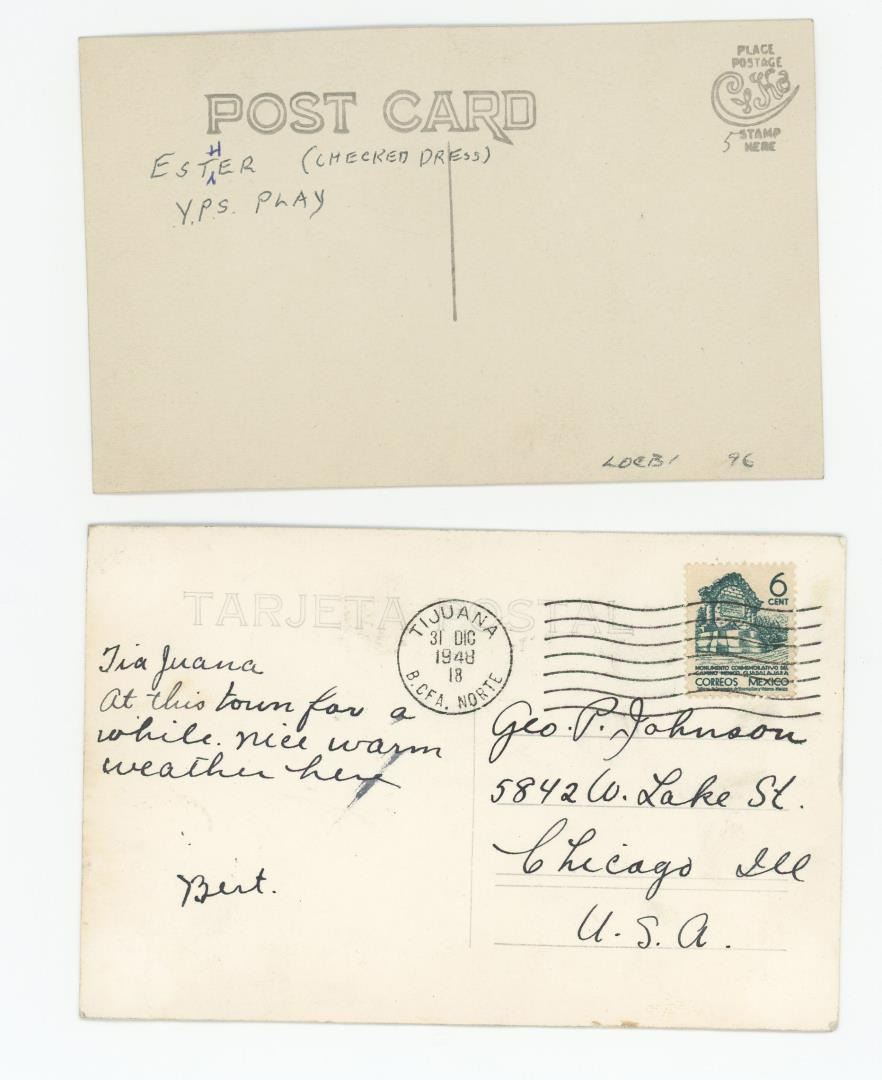 PLACE
POSTAGE
CYKO
5 STAMP
HERE
POST CARD
ESTHER (CHECKED DRESS)
Y.P.S. PLAY
96
TARJETA POSTAL
TIJUANA
31 DIC
1948
18
B. CFA. NORTE
6
CENT
MONUMENTO CONMEMORATIVO DEL
CAMINO MEXICO, GUADALAJARA
CORREOS MEXICO
Tia Juana
At this town for a
while. nice warm
weather here
Bert.
Geo. P. Johnson
5842 W. Lake St.
Chicago Ill
U. S. A.